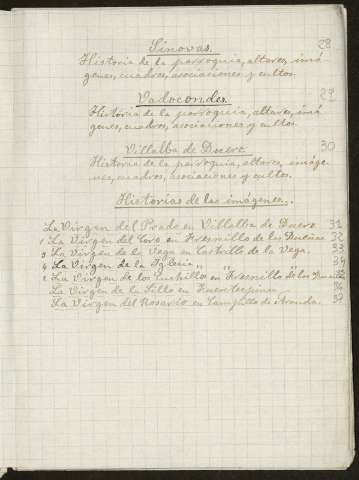 Sinovas. 28
Historia de la parroquia, altares, imá-
genes, cuadros, asociaciones y cultos.
Vadocondes. 29
Historia de la parroquia, altares, imá
genes, cuadros, asociaciones y cultos.
Villalba de Duero 30
Historia de la parroquia, altares, imáge-
nes, cuadros, asociaciones y cultos.
Historias de las imágenes.
La Virgen del Prado en Villalba de Duero 31
1 La Virgen del en Fresnillo de las Dueñas 32
3 La Virgen de la Vega en Castrillo de la Vega. 33
4 La Virgen de la Iglesia " " 34
2 La Virgen de los en Fresnillo de las Dueñas
La Virgen de la Silla en Fuentespina 36
La Virgen del Rosario en Campillo de Aranda. 37